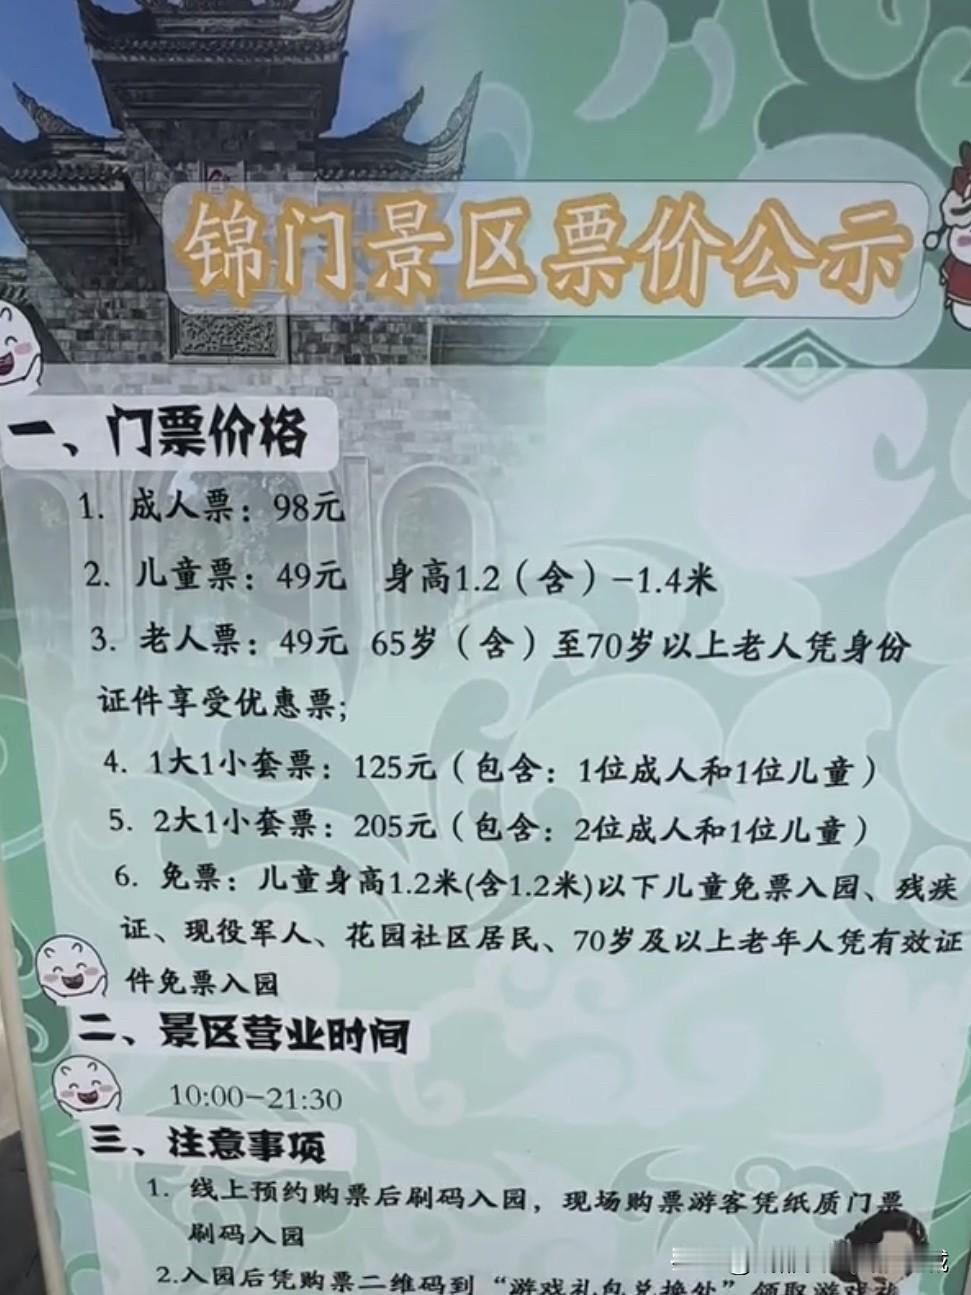 锦门景区票价公示
一、门票价格
1. 成人票：98元
2. 儿童票：49元 身高1.2（含）-1.4米
3. 老人票：49元 65岁（含）至70岁以上老人凭身份
证件享受优惠票;
4. 1大1小套票：125元（包含：1位成人和1位儿童）
5. 2大1小套票：205元（包含：2位成人和1位儿童）
6. 免票：儿童身高1.2米(含1.2米)以下儿童免票入园、残疾
证、现役军人、花园社区居民、70岁及以上老年人凭有效证
件免票入园
二、景区营业时间
10:00-21:30
三、注意事项
1. 线上预约购票后刷码入园，现场购票游客凭纸质门票
刷码入园
2.入园后凭购票二维码到“游戏礼包兑换处”领取游戏